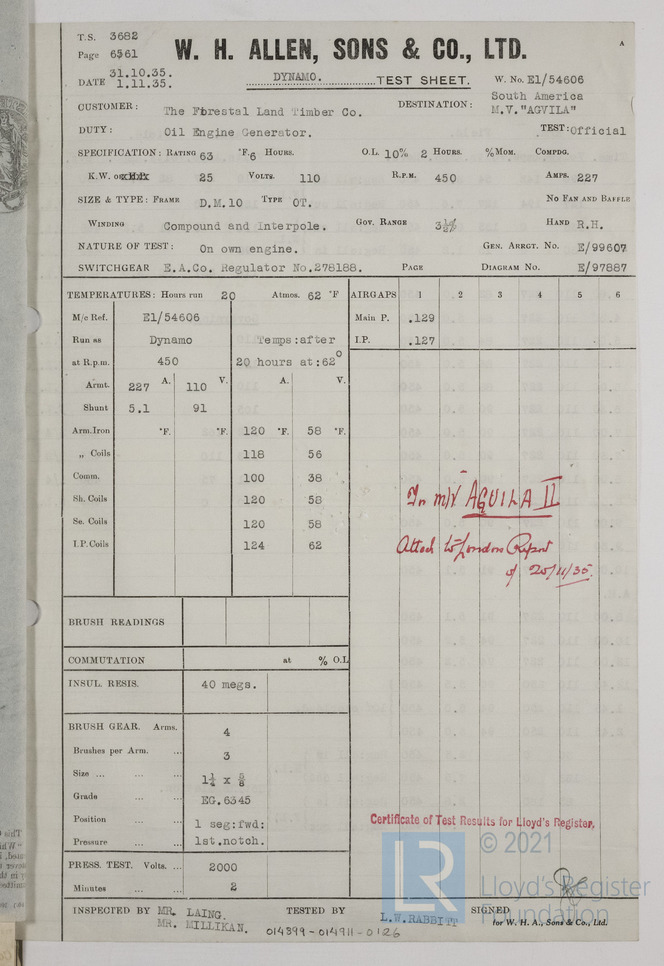 T.S. 3682
Page 6561
W. H. ALLEN, SONS & CO., LTD.
A
DATE 31.10.35.
1.11.35.
DYNAMO. TEST SHEET.
W. No. E1/54606
CUSTOMER: The Forestal Land Timber Co.
DESTINATION: South America
M.V. "AGVILA"
DUTY: Oil Engine Generator.
TEST: Official
SPECIFICATION: RATING 63 °F. 6 HOURS. O.L. 10% 2 HOURS. % MOM. COMPDG.
K.W. OR 25 VOLTS. 110 R.P.M. 450 AMPS. 227
SIZE & TYPE: FRAME D.M.10 TYPE OT. NO FAN AND BAFFLE
WINDING Compound and Interpole. GOV. RANGE 3½% HAND R.H.
NATURE OF TEST: On own engine. GEN. ARRGT. NO. E/99607
SWITCHGEAR E.A.Co. Regulator No.278188. PAGE DIAGRAM NO. E/97887
TEMPERATURES: Hours run 20 Atmos. 62 °F AIRGAPS 1 2 3 4 5 6
M/c Ref. E1/54606 Main P. .129
Run as Dynamo Temps:after I.P. .127
at R.p.m. 450 20 hours at:62°
Armt. 227 A. 110 V. A. V.
Shunt 5.1 91
Arm.Iron °F. °F. 120 °F. 58 °F.
„ Coils 118 56
Comm. 100 38
Sh. Coils 120 58
Se. Coils 120 58
I.P. Coils 124 62
In m/v AGUILA II
Attach to London Report
of 20/11/35.
BRUSH READINGS
COMMUTATION at % O.L
INSUL. RESIS. 40 megs.
BRUSH GEAR. Arms. 4
Brushes per Arm. ... 3
Size ... ... ... 1¼ x ⅝
Grade ... ... EG.6345
Position ... ... 1 seg:fwd:
Pressure ... ... 1st.notch.
Certificate of Test Results for Lloyd's Register,
PRESS. TEST. Volts. ... 2000
Minutes ... ... 2
LR
© 2021
Lloyd's Register
Foundation
INSPECTED BY MR. LAING.
MR. MILLIKAN.
TESTED BY L.W.RABBITT
SIGNED
for W. H. A., Sons & Co., Ltd.
014399-014911-0126